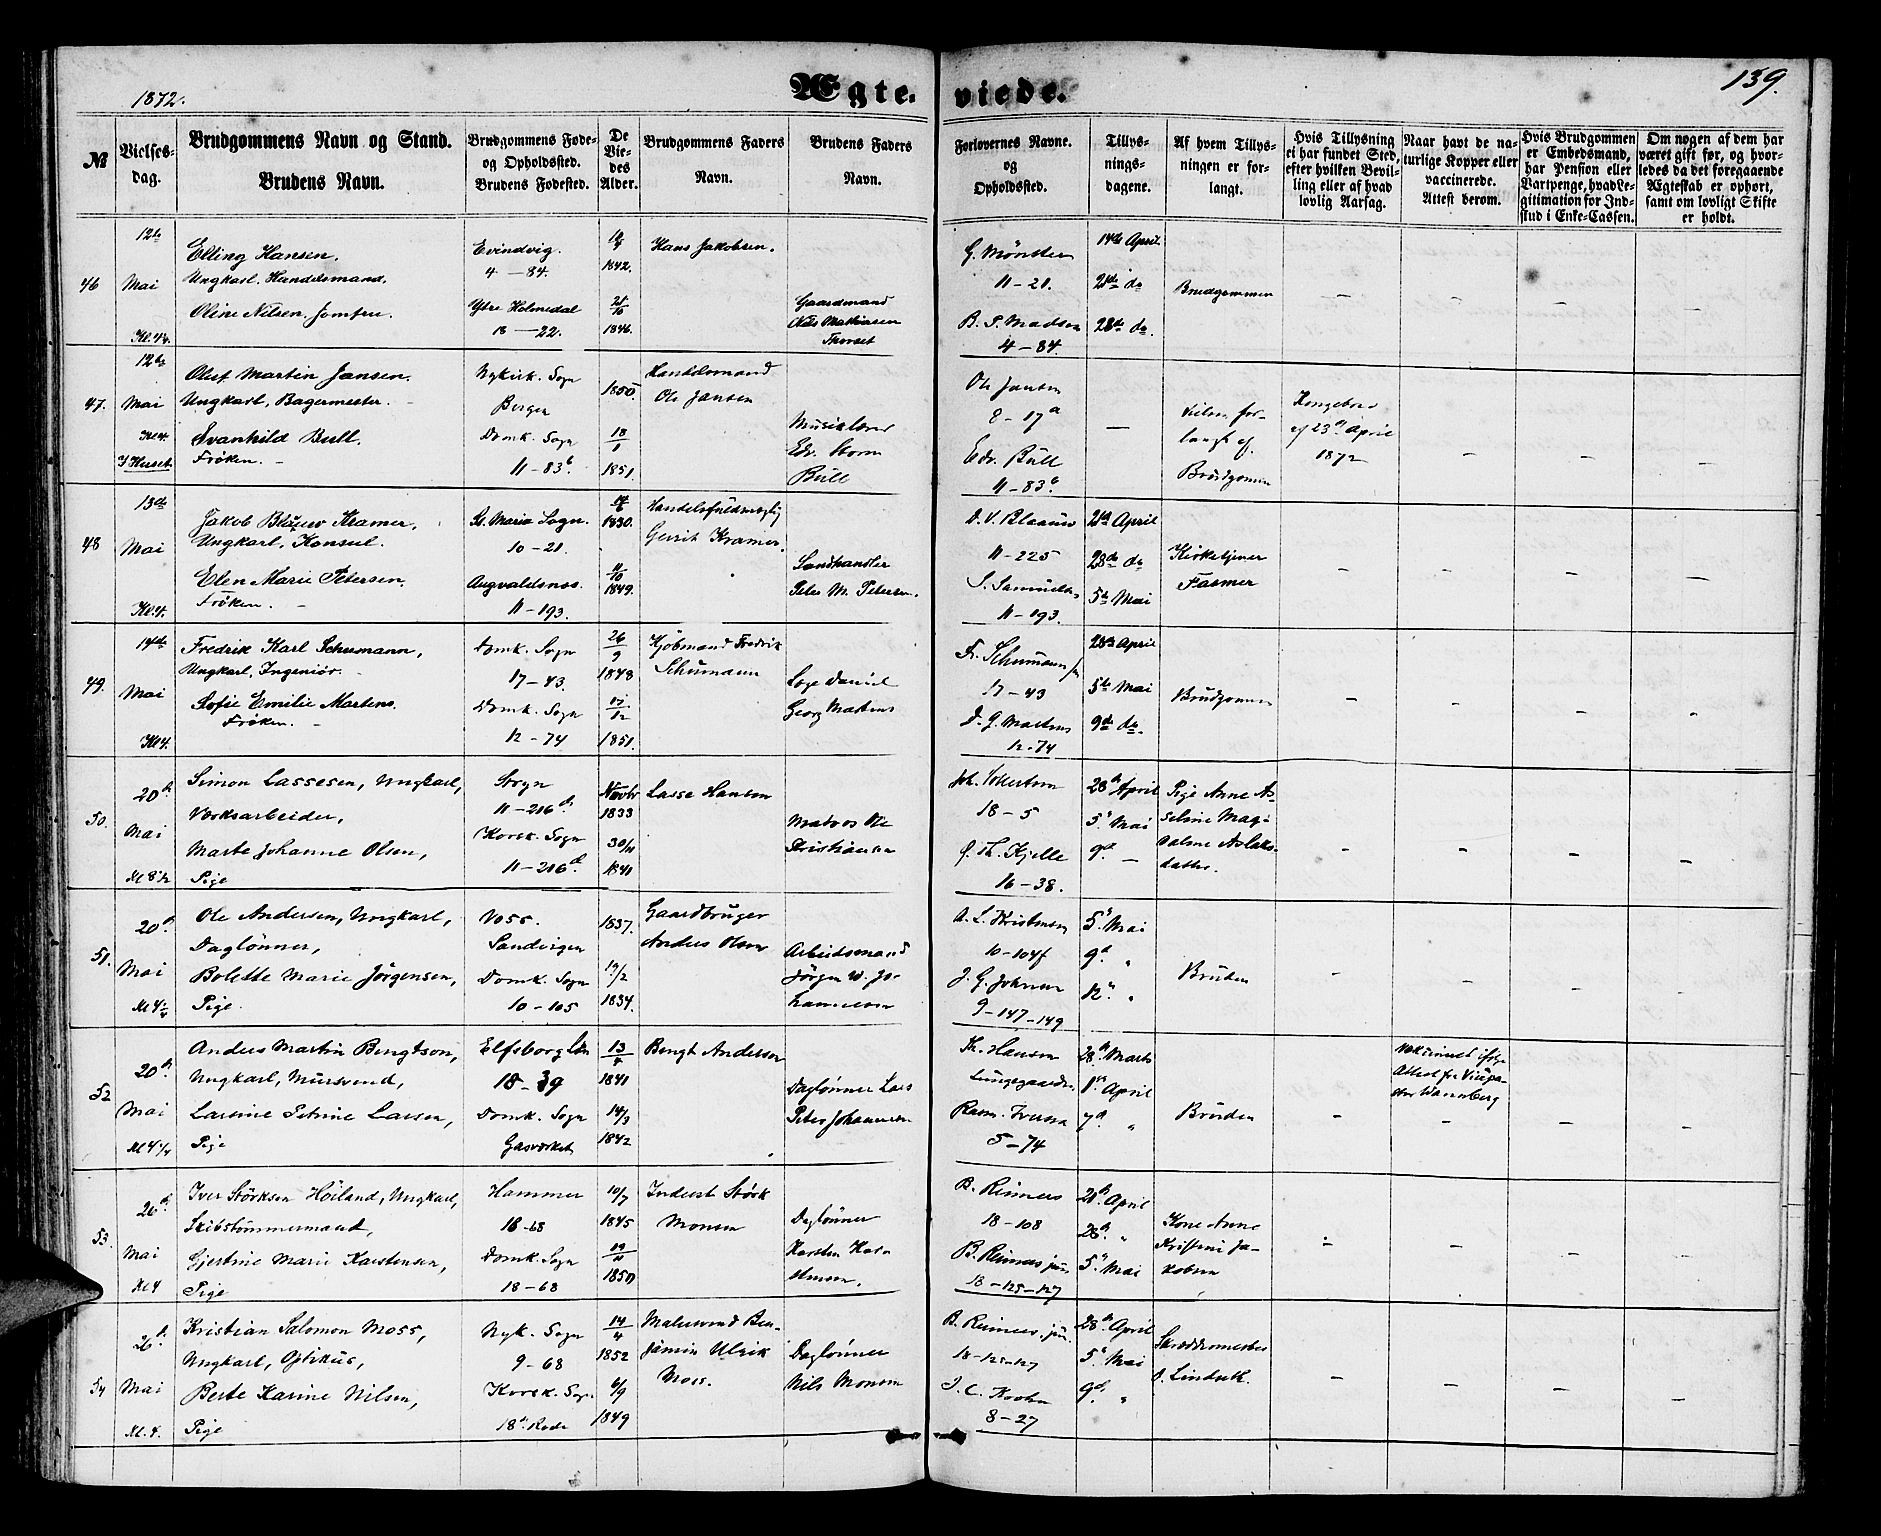 1872.
Ægte-viede.
139.
№
Vielses-
dag.
Brudgommens Navn og Stand.
Brudens Navn.
Brudgommens Føde-
og Opholdssted.
Brudens Fødested.
De
Vie-
des
Alder.
Brudgommens Faders
Navn.
Brudens Faders
Navn.
Forlovernes Navne.
og
Opholdssted.
Tillys-
nings-
dagene.
Af hvem Tillys-
ningen er for-
langt.
Hvis Tillysning
ei har fundet Sted,
efter hvilken Bevil-
ling eller af hvad
lovlig Aarsag.
Naar havt de na-
turlige Kopper eller
vaccinerede.
Attest derom.
Hvis Brudgommen
er Embedsmand,
har Pension eller
Vartpenge, hvad Le-
gitimation for Ind-
skud i Enke-Cassen.
Om nogen af dem har
været gift før, og hvor-
ledes da det foregaaende
Ægteskab er ophørt,
samt om lovligt Skifte
er holdt.
46
12te
Mai
Kl. 4½
Elling Hansen.
Ungkarl. Handelsmand.
Oline Nilsen. Jomfru.
Evindvig.
4 - 84.
Ytre Holmedal
18 - 22.
1842.
21/10
1846.
Hans Jakobsen.
Gaardmand
Nils Mathiasen
Thorset
G. Mønster
11 - 21.
B. S. Madsen
4 - 84.
14de April
21de do
28de do.
Brudgommen
47.
12te
Mai
Kl 4.
I Huset
Oluf Martin Jansen.
Ungkarl, Bagermester.
Svanhild Bull.
Frøken.
Nykirk. Sogn
Bergen
Domk. Sogn
11 - 83b
1850.
18/1
1851.
Handelsmand
Ole Jansen
Musiklærer
Edv. Storm
Bull
Ole Jansen
8 - 17a
Edv. Bull
11 - 83b.
Vielsen for-
langt af
Brudgommen
Kongebrev
af 23de April
1872
48
13de
Mai
Kl. 4.
Jakob Blauw Kramer,
Ungkarl, Konsul.
Elen Marie Petersen.
Frøken.
St. Maria Sogn.
10 - 21.
Augvaldsnes.
11 - 193.
1830.
11/10
1849.
Handelsfuldmægtig
Gerrit Kramer.
Landhandler
Peter M. Petersen.
D. V. Blaauw
11 - 225
S. Samuelsen
11 - 193
21de April
28de do
5te Mai
Kirketjener
Fasmer
49.
14de
Mai
Kl 4.
Fredrik Karl Schumann,
Ungkarl, Ingeniør.
Sofie Emilie Martens.
Frøken.
Domk. Sogn
17 - 43.
Domk. Sogn
12 - 74
26/9
1848
17/12
1851.
Kjøbmand Fredrik
Schumann
Daniel
Georg Martens
Fr. Schumann
17 - 43
D. G. Martens
12 - 74
28de April
5te Mai
9de do.
Brudgommen
50.
20de
Mai
Kl 8½
Simon Lassesen, Ungkarl,
Værksarbeider,
Marte Johanne Olsen,
Pige
Sogn
11 - 216d.
Korsk. Sogn
11 - 216d.
Novbr
1833
30/11
1841
Lasse Hansen
Matros Ole
Kristiansen
18 - 5
O. Th. Kjelle
16 - 38.
28de April
5te Mai
9de —
Pige Anne As-
seline Mag-
dalene Aslaks-
datter.
51.
20de
Mai
Kl 4¼
Ole Andersen, Ungkarl,
Dagløнner,
Bolette Marie Jørgensen,
Pige.
Voss.
Sandvigen
Domk. Sogn
10 - 105
1837.
19/2
1834.
Gaardbruger
Anders Olsen
Arbeidsmand
Jørgen W. Jo-
hannesen
A. L. Kristensen
10 - 104f
J. G. Johnsen
9 - 147 - 149
5te Mai
9de "
12te "
Bruden
52
20de
Mai
Kl 4¼
Anders Martin Bengtson,
Ungkarl, Mursvend,
Larsine Petrine Larsen,
Pige
Elfsborg Län
18 - 39
Domk. Sogn
Gasværket
13/4
1841
14/3
1842
Bengt Andersen
Dagløner Lars
Peter Johannesen
Th. Hansen
Lungegaarden
Rasm. Iversen
5 - 74
28de Marts
1ste April
7de "
Bruden
Vakcineret ifølge
Attest fra Vicepa-
stor Wannberg
53.
26de
Mai
Kl 4
Iver Størksen Høiland, Ungkarl,
Skibstømmermand,
Gjertine Marie Karstensen,
Pige
Hammer
18-68
Domk. Sogn
18 - 68
10/7
1845
19/11
1850
Inderst Størk
Monsen
Dagløner
Karsten Kars-
tensen.
B. Reimers
18 - 108
B. Reimers jun.
18 - 125 - 127
21de April
28de "
5te Mai
Kone Anne
Kristine Ja-
kobsen
54
26de
Mai
Kl. 4.
Kristian Salomon Moss,
Ungkarl, Optikus,
Berte Karine Nilsen,
Pige
Nyk. Sogn
9 - 68
Korsk. Sogn
18de Rode
14/4
1852
6/9
1849
Malersvend Ben-
jamin Ulrik
Moss.
Dagløner
Nils Monsen
B. Reimers jun.
18 - 125 - 127
J. C. Koren
8 - 27
28de April
5te Mai
9de "
Skræddermester
O. Lindvik